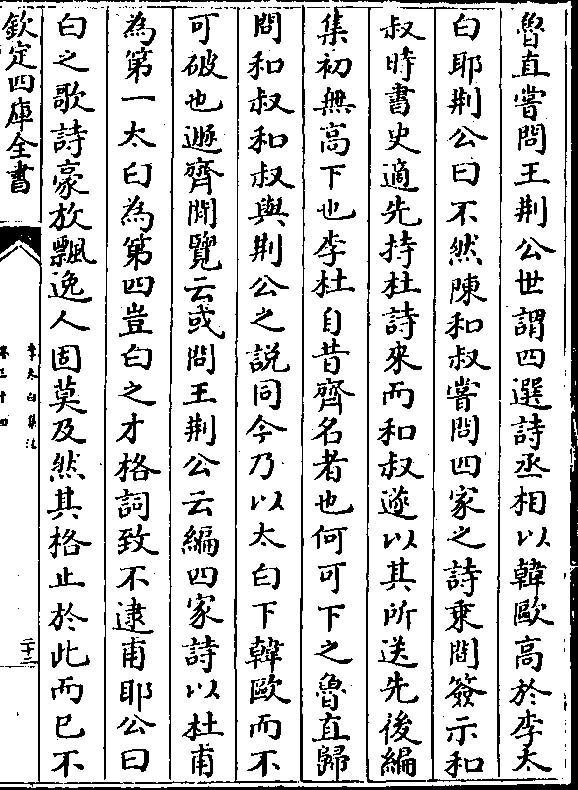 魯直嘗問王荆公世謂四選詩丞相以韓歐髙於李太
白耶荆公曰不然陳和叔嘗問四家之詩乗間簽示和
叔時書史適先持杜詩來而和叔遂以其所送先後編
集初無髙下也李杜自昔齊名者也何可下之魯直歸
問和叔和叔與荆公之説同今乃以太白下韓歐而不
可破也遯齊閒覽云或問王荆公云編四家詩以杜甫
為第一太白為第四豈白之才格詞致不逮甫耶公曰
白之歌詩豪放飄逸人固莫及然其格止於此而已不
欽定四庫全書
李太白集注
卷三十四
二十二